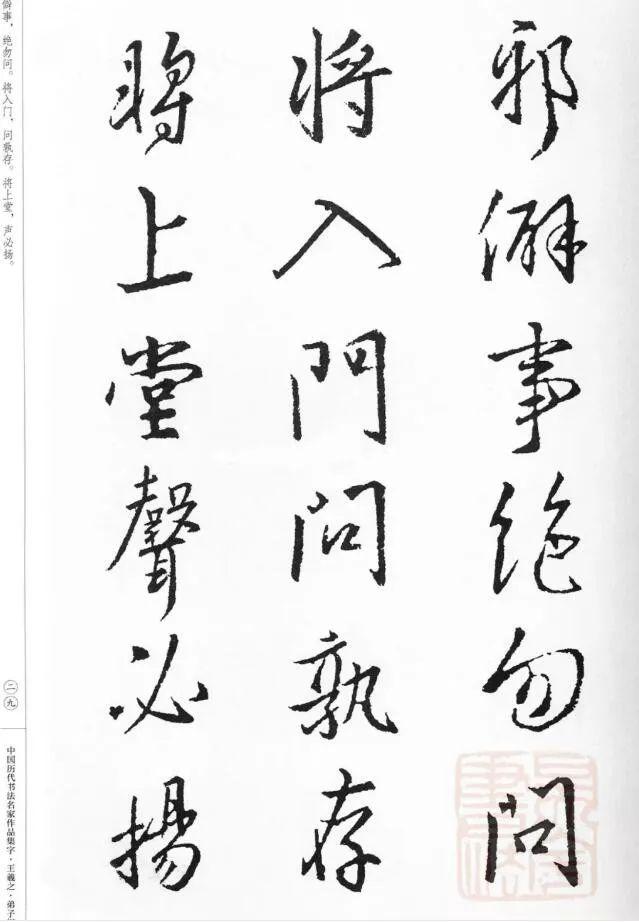 邪僻事絶勿問
將入門問孰存
將上堂聲必揚
僻事，绝勿问。将入门，问孰存。将上堂，声必扬。
二九
中国历代书法名家作品集字·王羲之·弟子